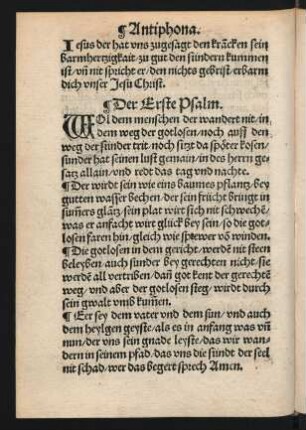 ¶ Antiphona.
Iesus der hat vns zugesagt den krācken sein
barmhertzigkait / zu gut den sündern kummen
ist / vñ nit spricht er / den nichts gebrist / erbarm
dich vnser Jesu Christ.
¶ Der Erste Psalm.
WOl dem menschen der wandert nit / in
dem weg der gotlosen / noch auff den
weg der sünder trit / noch sitzt da spöter kosen /
sunder hat seinen lust gemain / in des herrn ge⸗
satz allain / vnd redt das tag vnd nachte.
¶ Der wirdt sein wie eins baumes pflantz / bey
gutten wasser bechen / der sein frücht bringt in
sum̃ers glātz / sein plat wirt sich nit schwechē /
was er anfacht wirt glück bey sein / so die got⸗
losen faren hin / gleich wie sprewer võ winden.
¶ Die gotlosen in dem gericht / werdē nit steen
beleyben / auch sünder bey gerechten nicht / sie
werdē all vertribē / dañ got kent der gerechtē
weg / vnd aber der gotlosen steg / wirdt durch
sein gwalt vmb kum̃en.
¶ Eer sey dem vater vnd dem sun / vnd auch
dem heylgen geyste / als es in anfang was vñ
nun / der vns sein gnade leyste / das wir wan⸗
dern in seinem pfad / das vns die sündt der seel
nit schad / wer das begert sprech Amen.